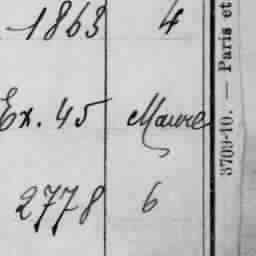 1863 4
Ex. 45 Maure
2778 6
3709-10. — Paris et